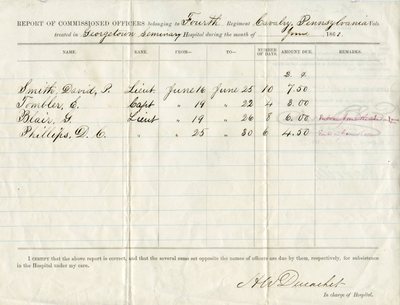 REPORT OF COMMISSIONED OFFICERS belonging to Fourth Regiment Cavalry, Pennsylvania Vols
treated in Georgetown Seminary Hospital during the month of June, 1861.
NAME. RANK. FROM— TO— NUMBER OF DAYS. AMOUNT DUE. REMARKS.
Smith, David, P. Lieut June 16 June 25 10 7.50
Tombler, E. Capt " 19 " 22 4 3.00
Blair, G. Lieut " 19 " 26 8 6.00
Phillips, D. C. " " 25 " 30 6 4.50
I CERTIFY that the above report is correct, and that the several sums set opposite the names of officers are due by them, respectively, for subsistence
in the Hospital under my care.
H W Ducachet
In charge of Hospital.